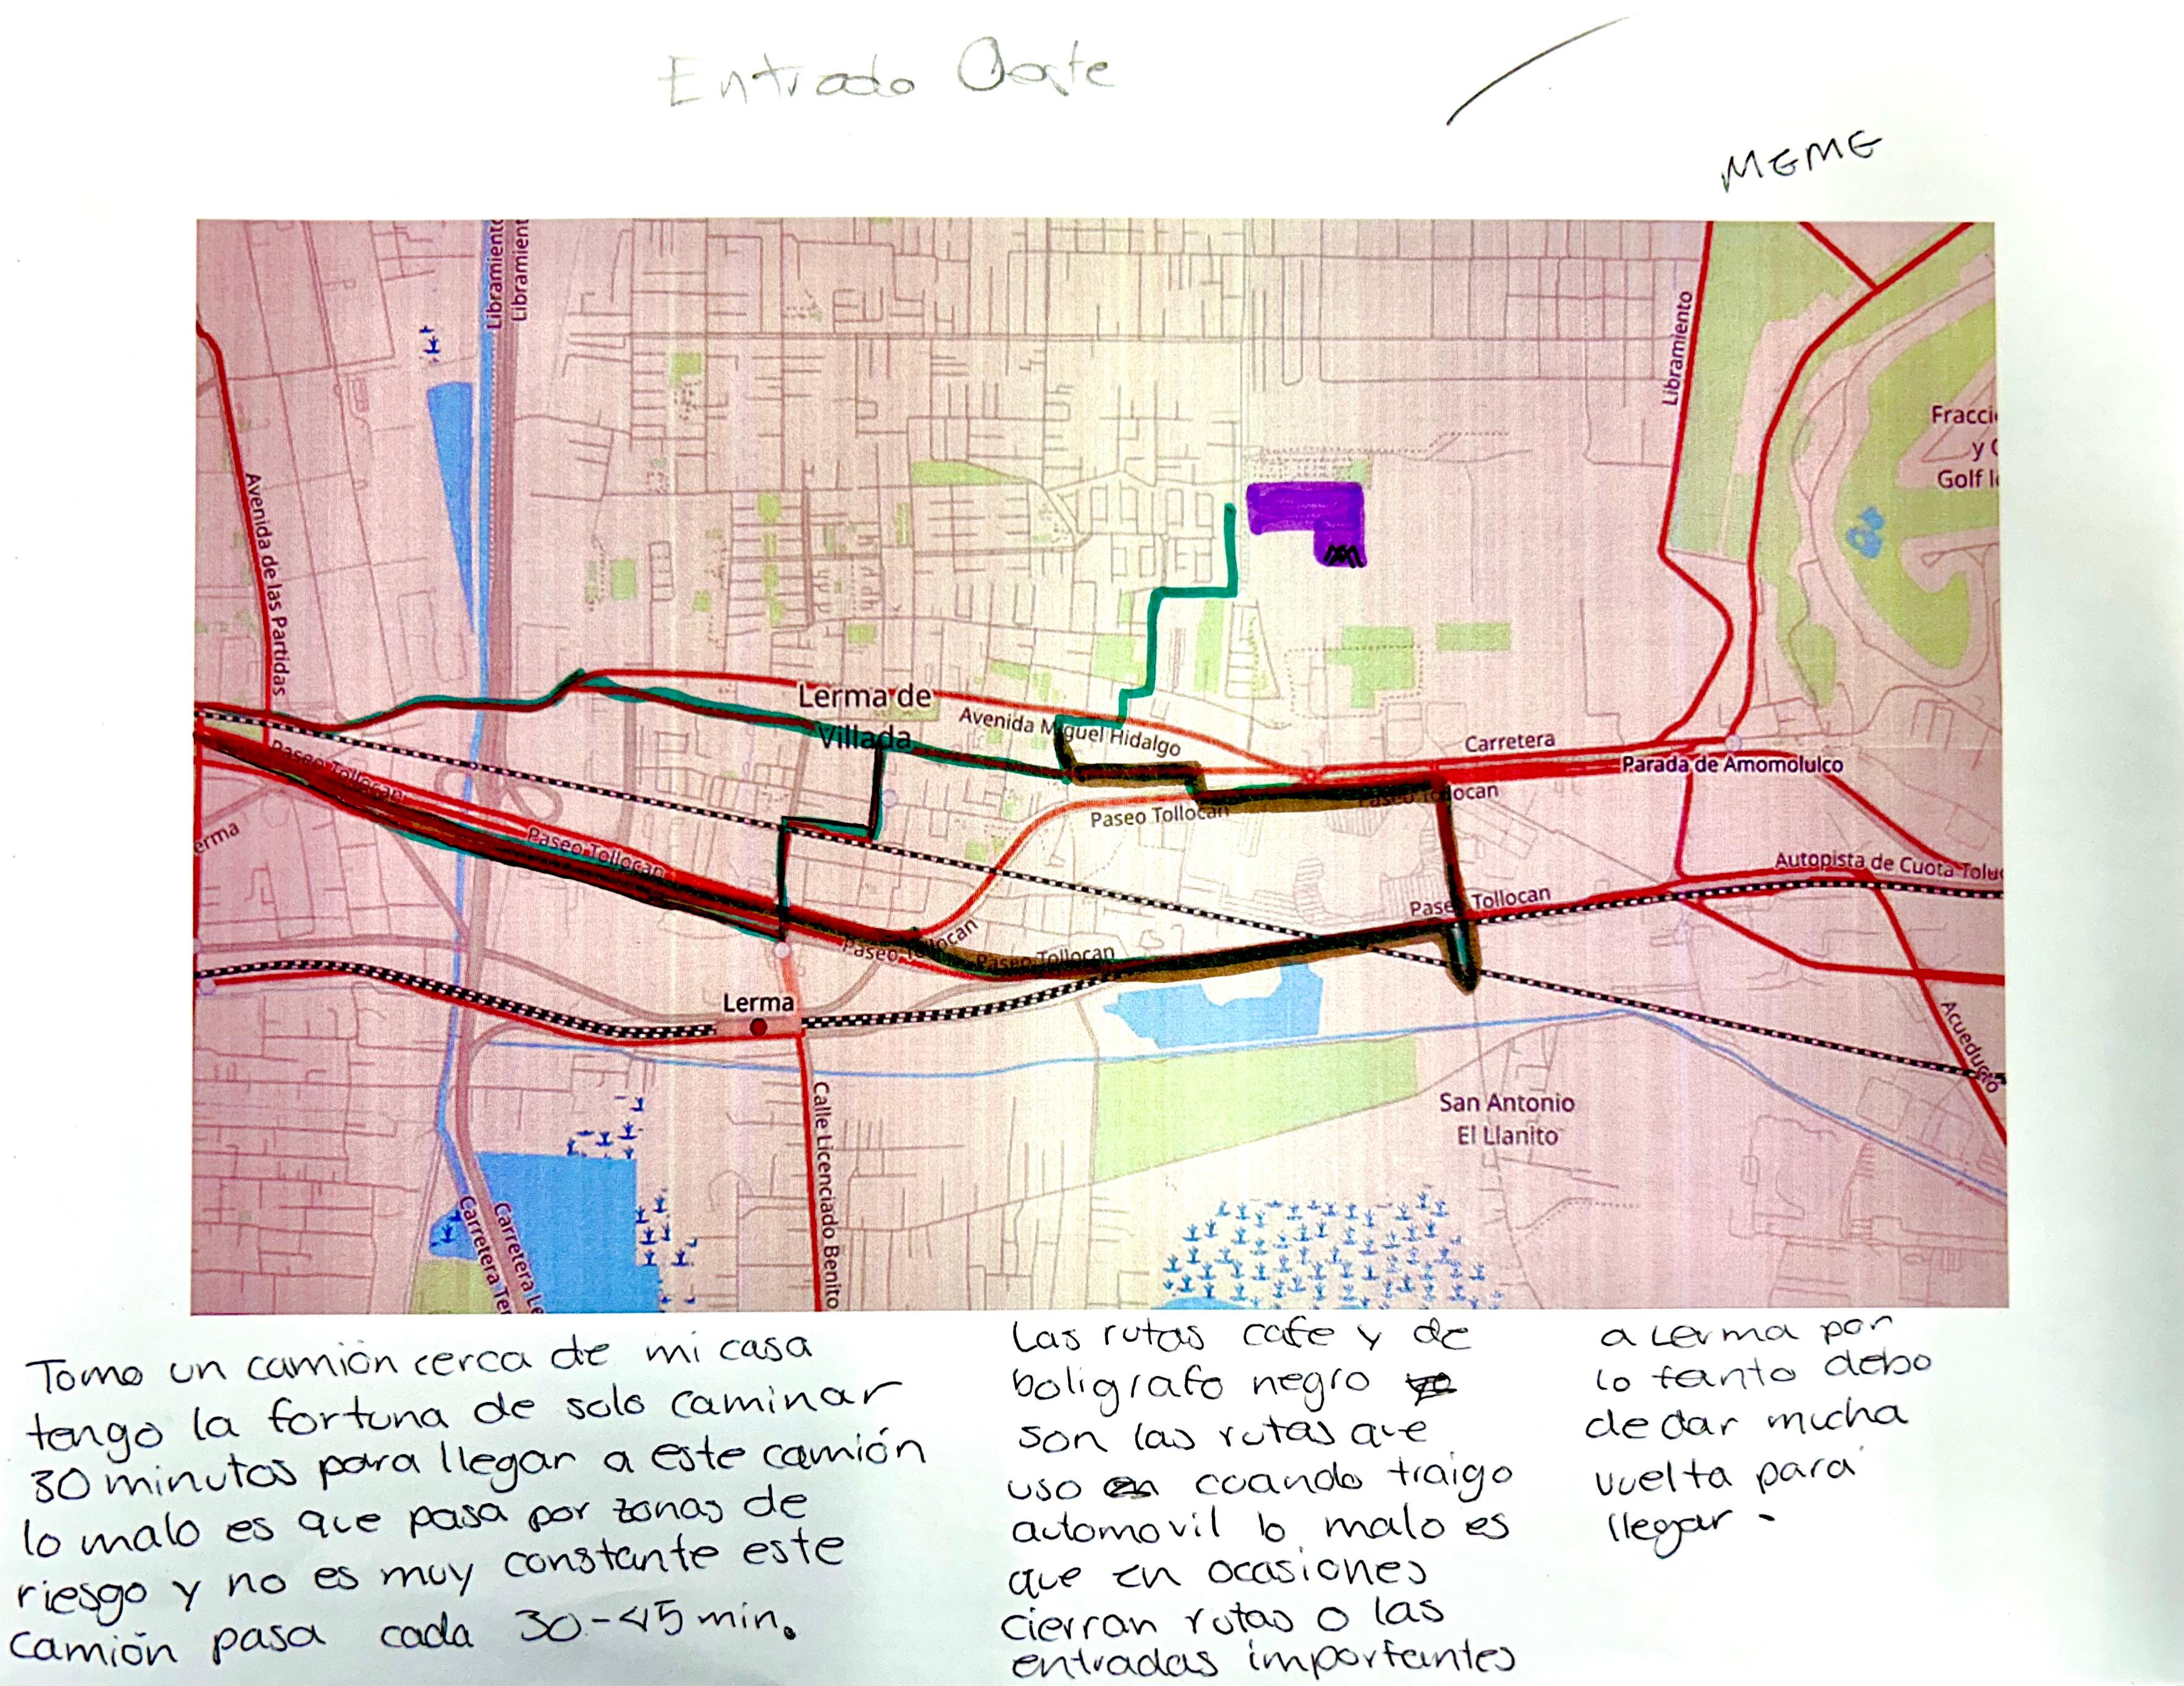 Entrado Oeste
MEME
Libramiento
Libramient
Libramiento
Fracci
y C
Golf l
Avenida de las Partidas
Lerma de
Villada
Avenida Miguel Hidalgo
Carretera
Parada de Amomolulco
Paseo Tollocan
Paseo Tollocan
Paseo Tollocan
Paseo Tollocan
erma
Autopista de Cuota Toluc
Paseo Tollocan
Paseo Tollocan
Paseo Tollocan
Lerma
Acueducto
Calle Licenciado Benito
San Antonio
El Llanito
Carretera Ter
Carretera Le
Tomo un camión cerca de mi casa
tengo la fortuna de solo caminar
30 minutos para llegar a este camión
lo malo es que pasa por zonas de
riesgo y no es muy constante este
camión pasa cada 30-45 min.
Las rutas cafe y de
boligrafo negro
son las rutas que
uso cuando traigo
automovil lo malo es
que en ocasiones
cierran rutas o las
entradas importantes
a Lerma por
lo tanto debo
de dar mucha
vuelta para
llegar.